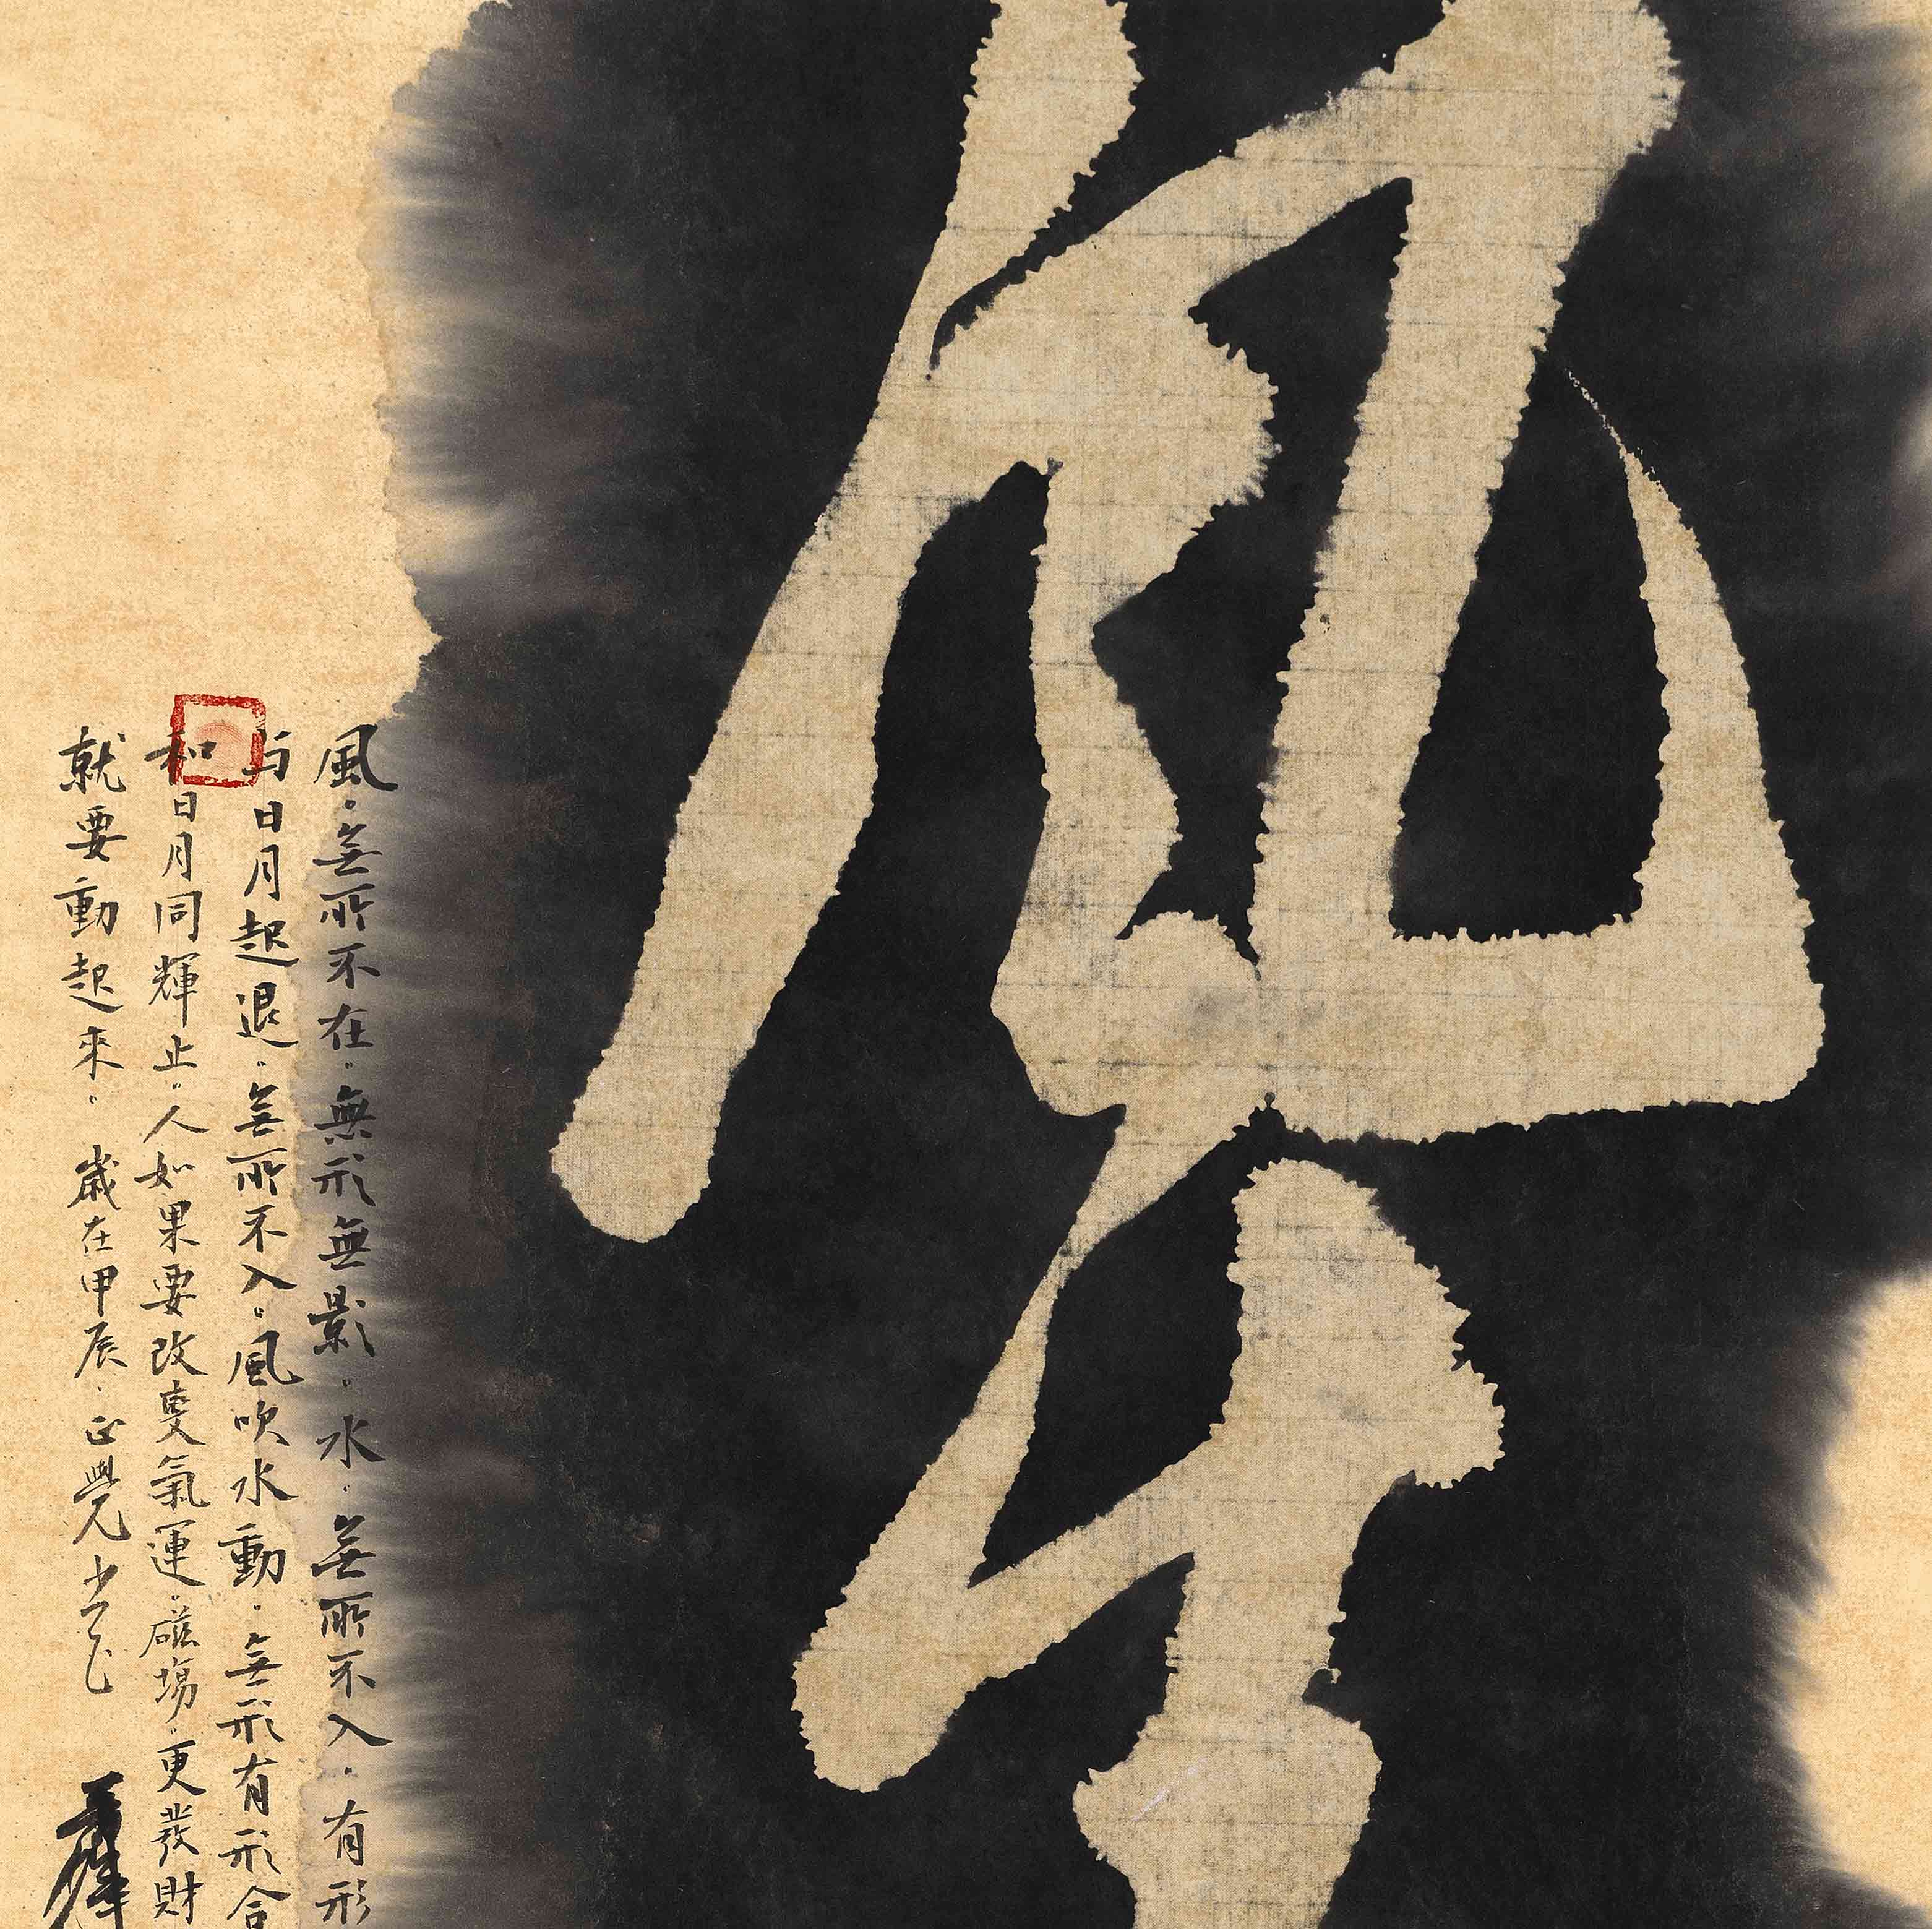 風。無所不在。無形無影。水。無所不入。有形
与日月起退。無所不入。風吹水動。無形有形合
和日月同輝止。人如果要改變氣運。磁場。更發財
就要動起來。歲在甲辰。正覺